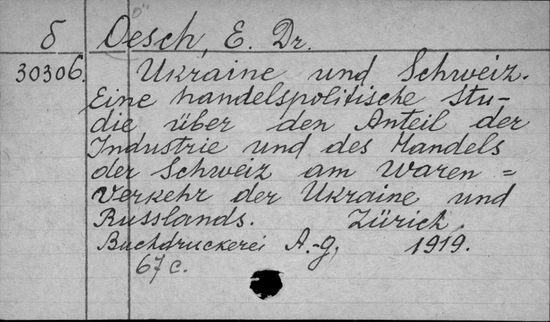 "Ö"
б Oesch, E. Dr.
30306. Ukraine und Schweiz.
Eine handelspolitische Stu-
die über den Anteil der
Industrie und des Handels
der Schweiz am Waren=
Verkehr der Ukraine und
Russlands. Zürich.
Buchdruckerei A.-g, 1919.
67 c.